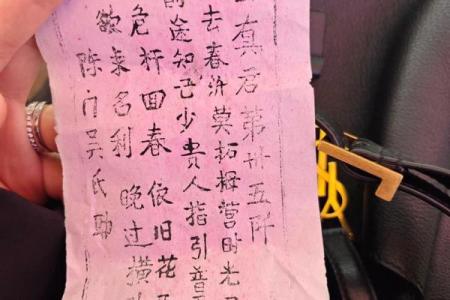 真君第卅五阡
去春汾莫拓营时光
途知己少贵人指引普
危杆回春依旧花
欲来名利晚过横
陈门吴氏助